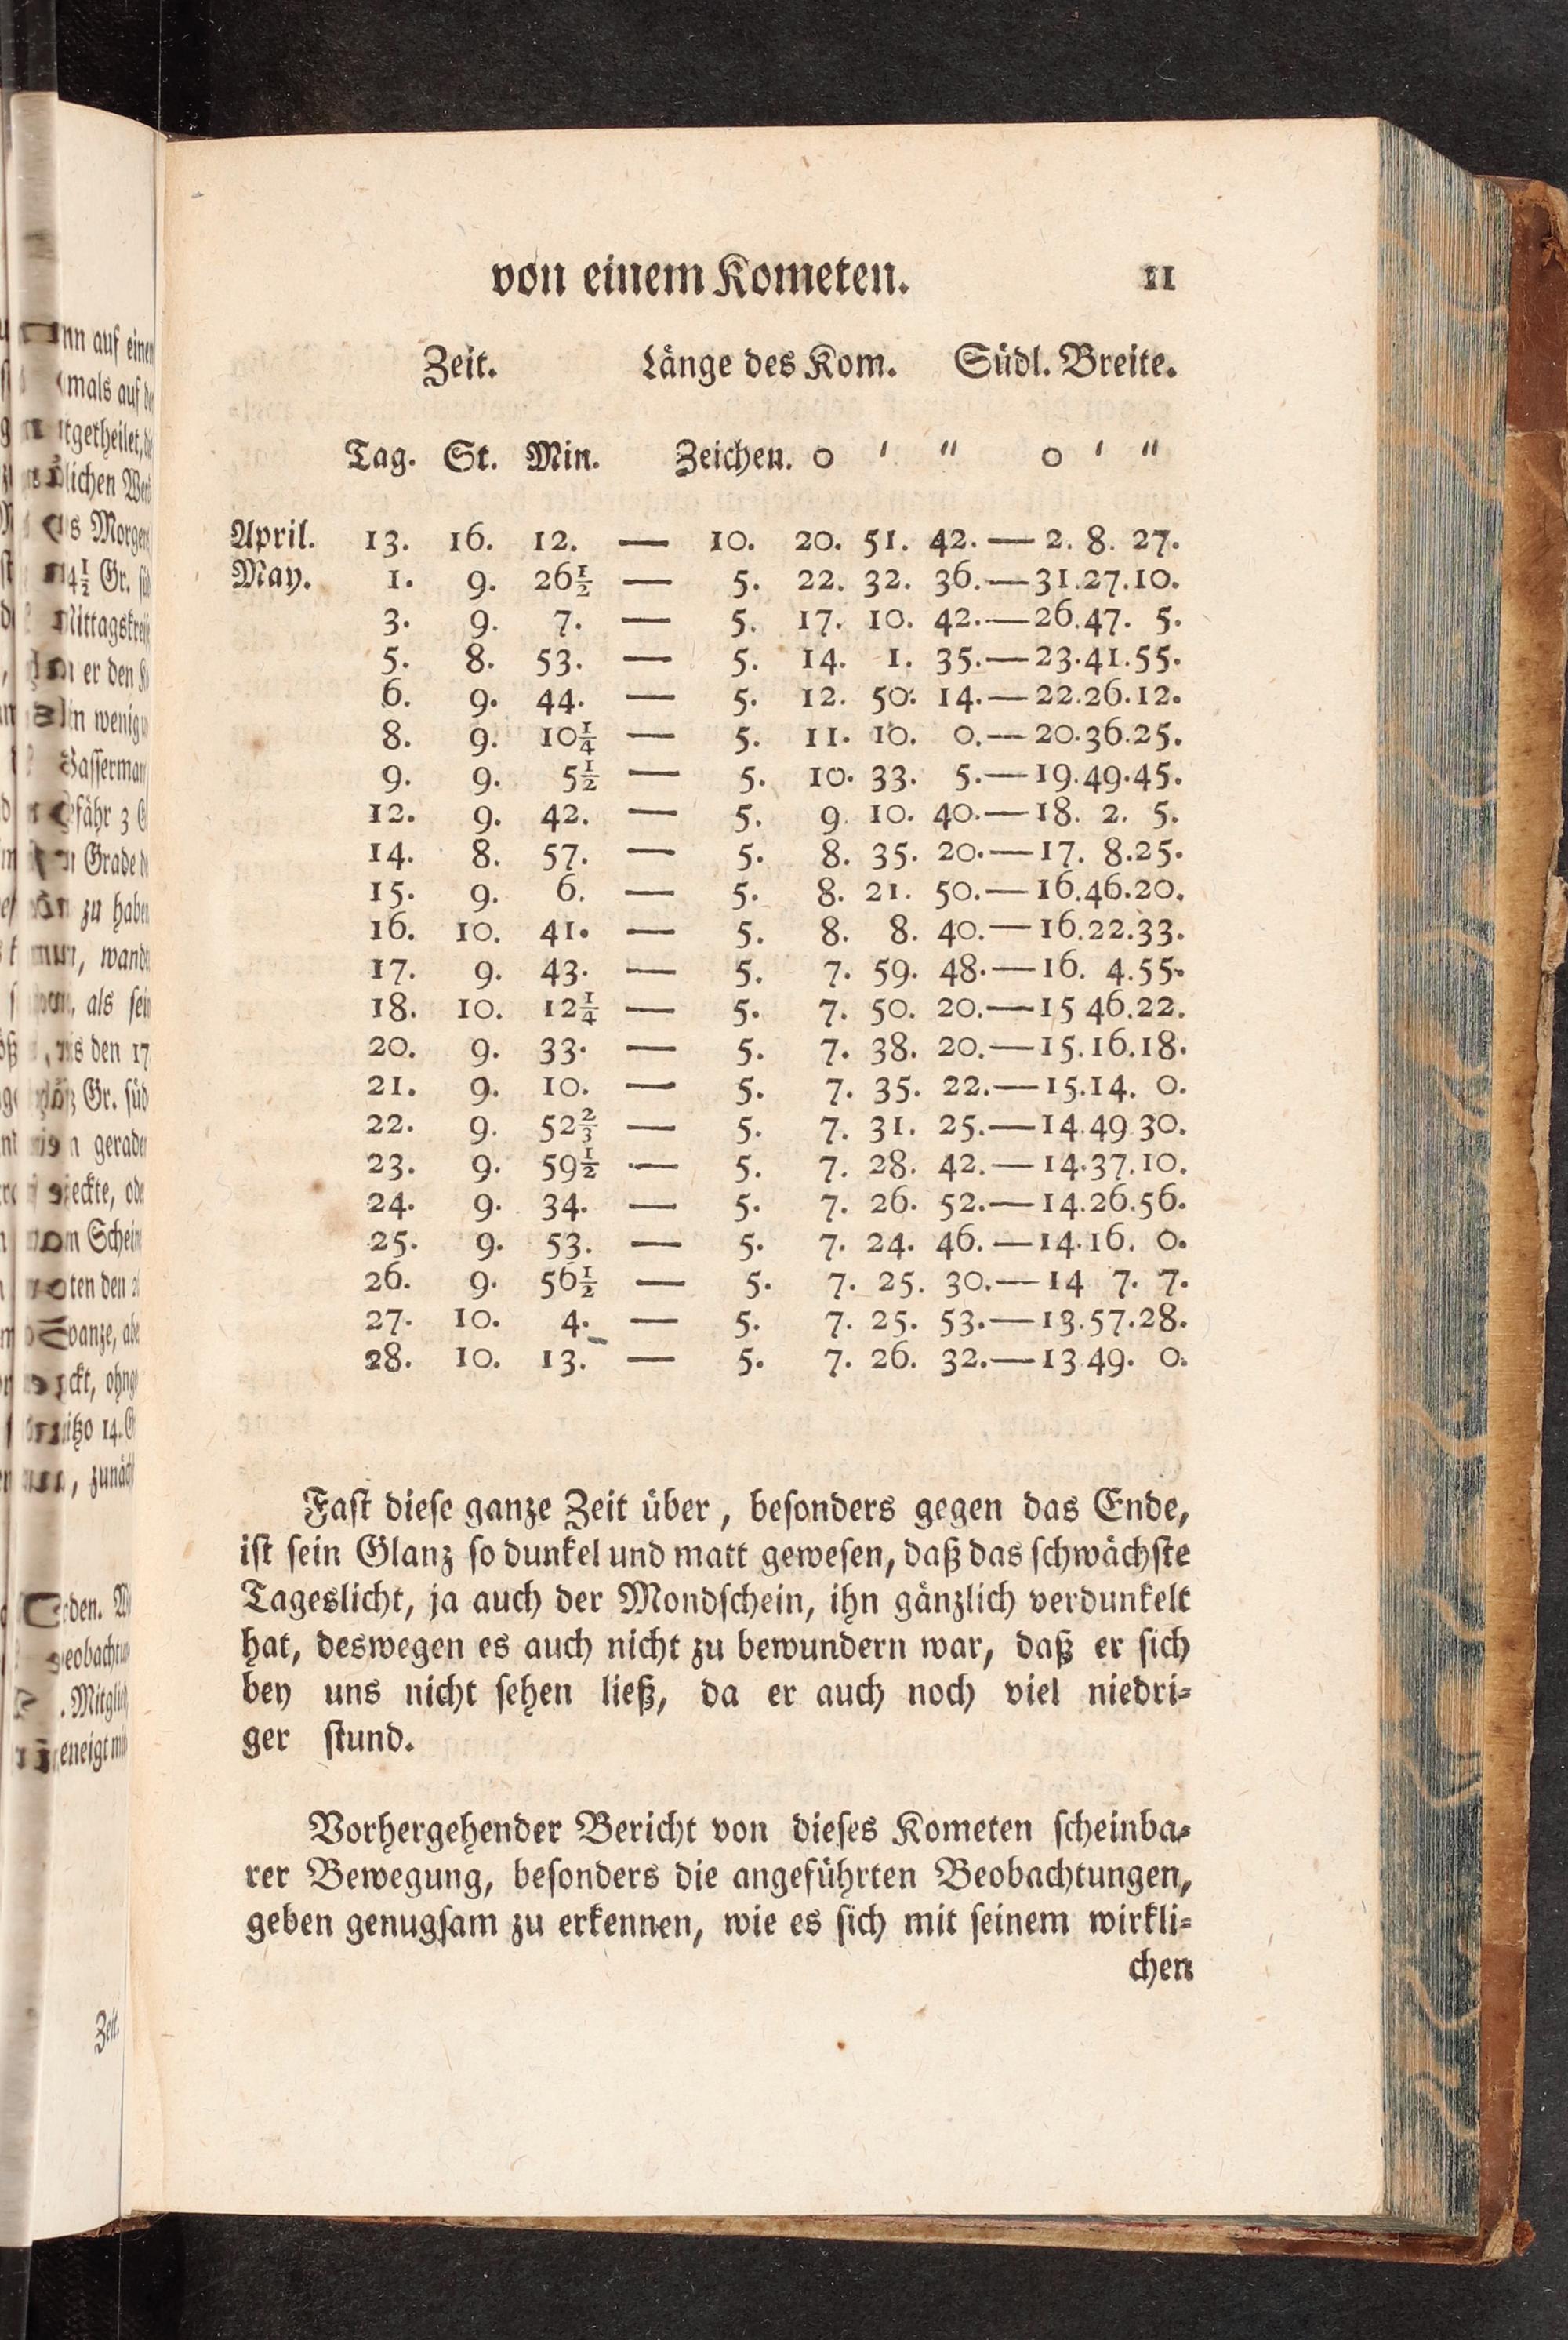 von einem Kometen. 11
Zeit. Länge des Kom. Südl. Breite.
Tag. St. Min. Zeichen. o ′ ″ o ′ ″
April. 13. 16. 12. — 10. 20. 51. 42. — 2. 8. 27.
May. 1. 9. 26½ — 5. 22. 32. 36. — 31.27.10.
3. 9. 7. — 5. 17. 10. 42. — 26.47. 5.
5. 8. 53. — 5. 14. 1. 35. — 23.41.55.
6. 9. 44. — 5. 12. 50. 14. — 22.26.12.
8. 9. 10¼ — 5. 11. 10. 0. — 20.36.25.
9. 9. 5½ — 5. 10. 33. 5. — 19.49.45.
12. 9. 42. — 5. 9 10. 40. — 18. 2. 5.
14. 8. 57. — 5. 8. 35. 20. — 17. 8.25.
15. 9. 6. — 5. 8. 21. 50. — 16.46.20.
16. 10. 41. — 5. 8. 8. 40. — 16.22.33.
17. 9. 43. — 5. 7. 59. 48. — 16. 4.55.
18. 10. 12¼ — 5. 7. 50. 20. — 15 46.22.
20. 9. 33. — 5. 7. 38. 20. — 15.16.18.
21. 9. 10. — 5. 7. 35. 22. — 15.14. 0.
22. 9. 52⅔ — 5. 7. 31. 25. — 14.49 30.
23. 9. 59½ — 5. 7. 28. 42. — 14.37.10.
24. 9. 34. — 5. 7. 26. 52. — 14.26.56.
25. 9. 53. — 5. 7. 24. 46. — 14.16. 0.
26. 9. 56½ — 5. 7. 25. 30. — 14 7. 7.
27. 10. 4. — 5. 7. 25. 53. — 13.57.28.
28. 10. 13. — 5. 7. 26. 32. — 13 49. 0.
Fast diese ganze Zeit über, besonders gegen das Ende,
ist sein Glanz so dunkel und matt gewesen, daß das schwächste
Tageslicht, ja auch der Mondschein, ihn gänzlich verdunkelt
hat, deswegen es auch nicht zu bewundern war, daß er sich
bey uns nicht sehen ließ, da er auch noch viel niedri=
ger stund.
Vorhergehender Bericht von dieses Kometen scheinba=
rer Bewegung, besonders die angeführten Beobachtungen,
geben genugsam zu erkennen, wie es sich mit seinem wirkli=
chen